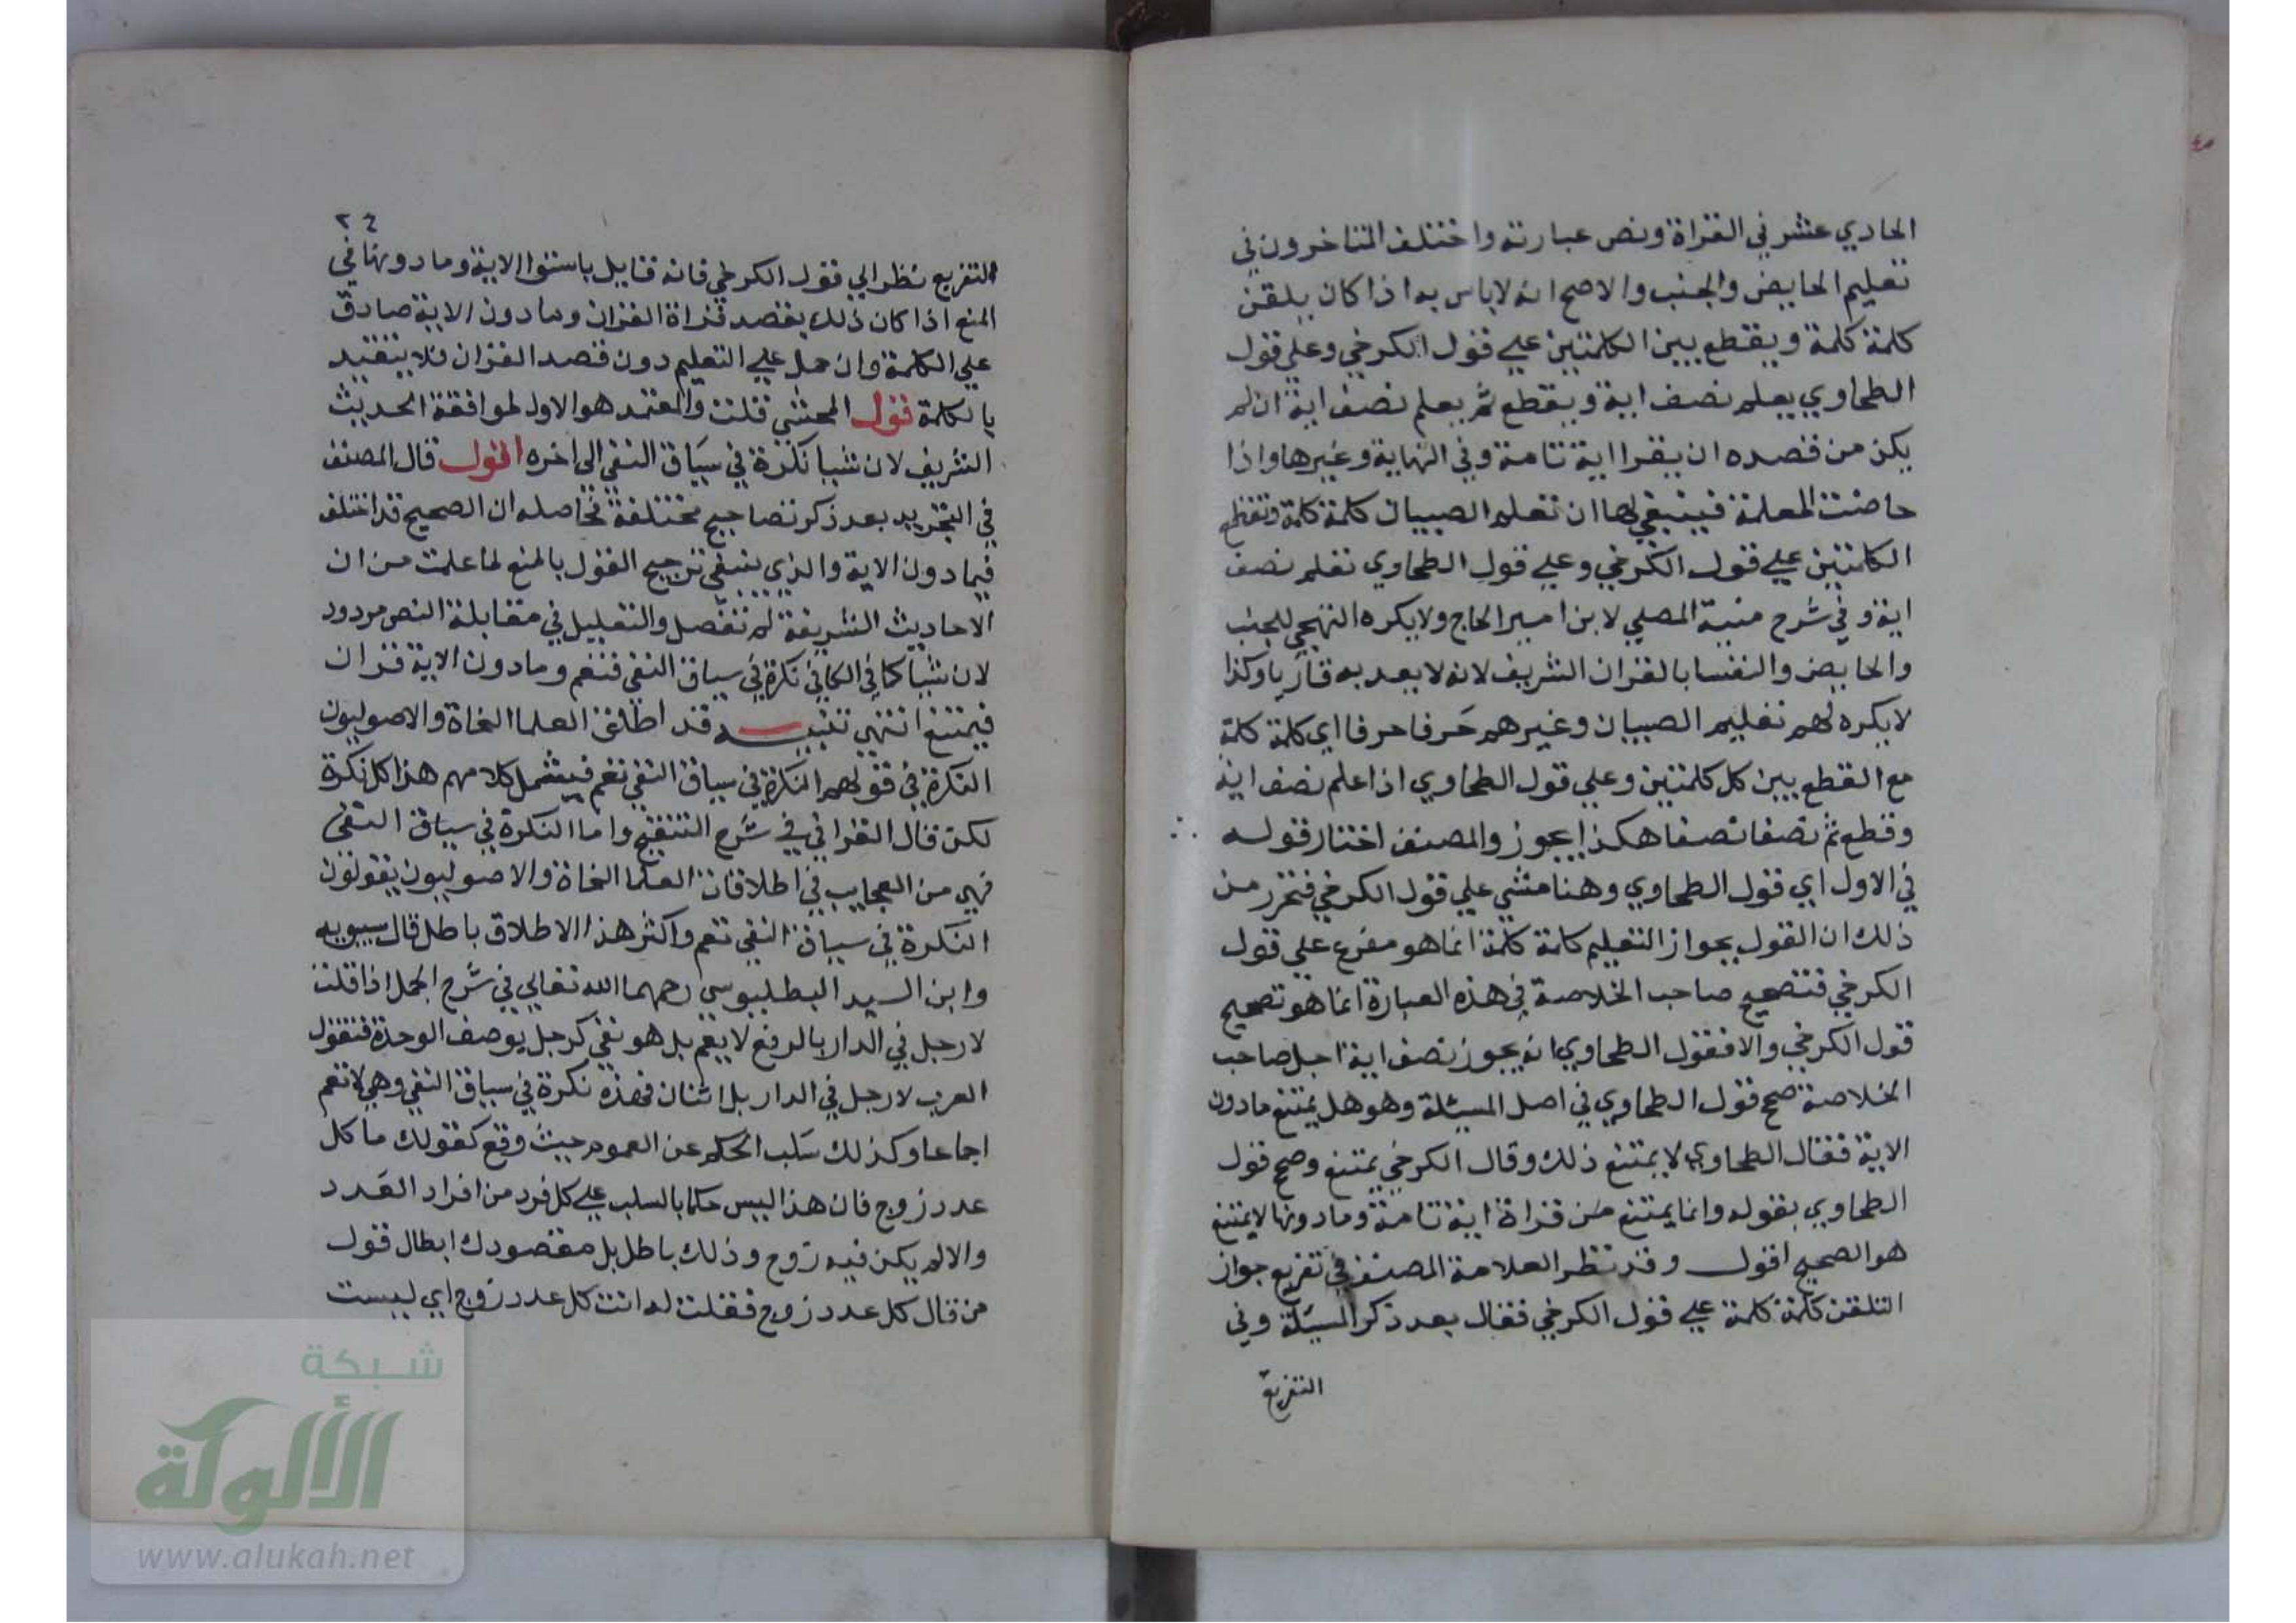 الحادي عشر في القراة ونص عبارته واختلف المتاخرون في
تعليم الحايض والجنب والاصح انه لاباس به اذا كان يلقن
كلمة كلمة ويقطع بين الكلمتين علي قول الكرخي وعلي قول
الطحاوي يعلم نصف اية ويقطع ثم يعلم نصف اية ان لم
يكن من قصده ان يقرا اية تامة وفي النهاية وغيرها واذا
حاضت المعلمة فينبغي لها ان تعلم الصبيان كلمة كلمة وتقطع
الكلمتين علي قول الكرخي وعلي قول الطحاوي تعلم نصف
اية وفي شرح منية المصلي لابن امير الحاج ولا يكره التهجي للجنب
والحايض والنفسا بالقران الشريف لانه لا يعد به قاريا وكذا
لا يكره لهم تعليم الصبيان وغيرهم حرفا حرفا اي كلمة كلمة
مع القطع بين كل كلمتين وعلي قول الطحاوي اذا علم نصف اية
وقطع ثم نصفا نصفا هكذا يجوز والمصنف اختار قوله
في الاول اي قول الطحاوي وهنا مشي علي قول الكرخي فتحرر من
ذلك ان القول بجواز التعليم كلمة كلمة انما هو مفرع علي قول
الكرخي فتصحيح صاحب الخلاصة في هذه العبارة انما هو تصحيح
قول الكرخي والا فقول الطحاوي انه يجوز نصف اية اجل صاحب
الخلاصة صحح قول الطحاوي في اصل المسئلة وهو هل يمتنع مادون
الاية فقال الطحاوي لا يمتنع ذلك وقال الكرخي يمتنع وصحح قول
الطحاوي بقوله وانما يمتنع من قراة اية تامة وما دونها لا يمتنع
هو الصحيح اقول وقد نظر العلامة المصنف في تفريع جواز
التلقن كلمة كلمة علي قول الكرخي فقال بعد ذكر المسئلة وفي
التفريع
٢٤
التفريع نظر الي قول الكرخي فانه قايل باستوا الاية وما دونها في
المنع اذا كان ذلك بقصد قراة القران وما دون الاية صادق
علي الكلمة وان حمل علي التعليم دون قصد القران فلا يتقيد
بالكلمة قول المحشي قلت والمعتمد هو الاول لموافقة الحديث
الشريف لان شيا نكرة في سياق النفي الي اخره اقول قال المصنف
في التجريد بعد ذكر تصاحيح مختلفة فحاصله ان الصحيح قد اختلف
فيما دون الاية والذي ينبغي ترجيح القول بالمنع لما علمت من ان
الاحاديث الشريفة لم تفصل والتعليل في مقابلة النص مردود
لان شيا كما في الكافي نكرة في سياق النفي فتعم وما دون الاية قران
فيمتنع انتهي تنبيه قد اطلق العلما النحاة والاصوليون
النكرة في قولهم النكرة في سياق النفي تعم فيشمل كلامهم هذا كل نكرة
لكن قال القرافي في شرح التنقيح واما النكرة في سياق النفي
فهي من العجايب في اطلاقات العلما النحاة والاصوليون يقولون
النكرة في سياق النفي تعم واكثر هذا الاطلاق باطل قال سيبويه
وابن السيد البطليوسي رحمهما الله تعالي في شرح الجمل اذا قلت
لا رجل في الدار بالرفع لا يعم بل هو نفي كرجل يوصف الوحدة فتقول
العرب لا رجل في الدار بل اثنان فهذه نكرة في سياق النفي وهي لا تعم
اجماعا وكذلك سلب الحكم عن العموم حيث وقع كقولك ما كل
عدد زوج فان هذا ليس حكما بالسلب علي كل فرد من افراد العدد
والا لم يكن فيه زوج وذلك باطل بل مقصودك ابطال قول
من قال كل عدد زوج فقلت له انت كل عدد زوج اي ليست
شبكة
الألوكة
www.alukah.net